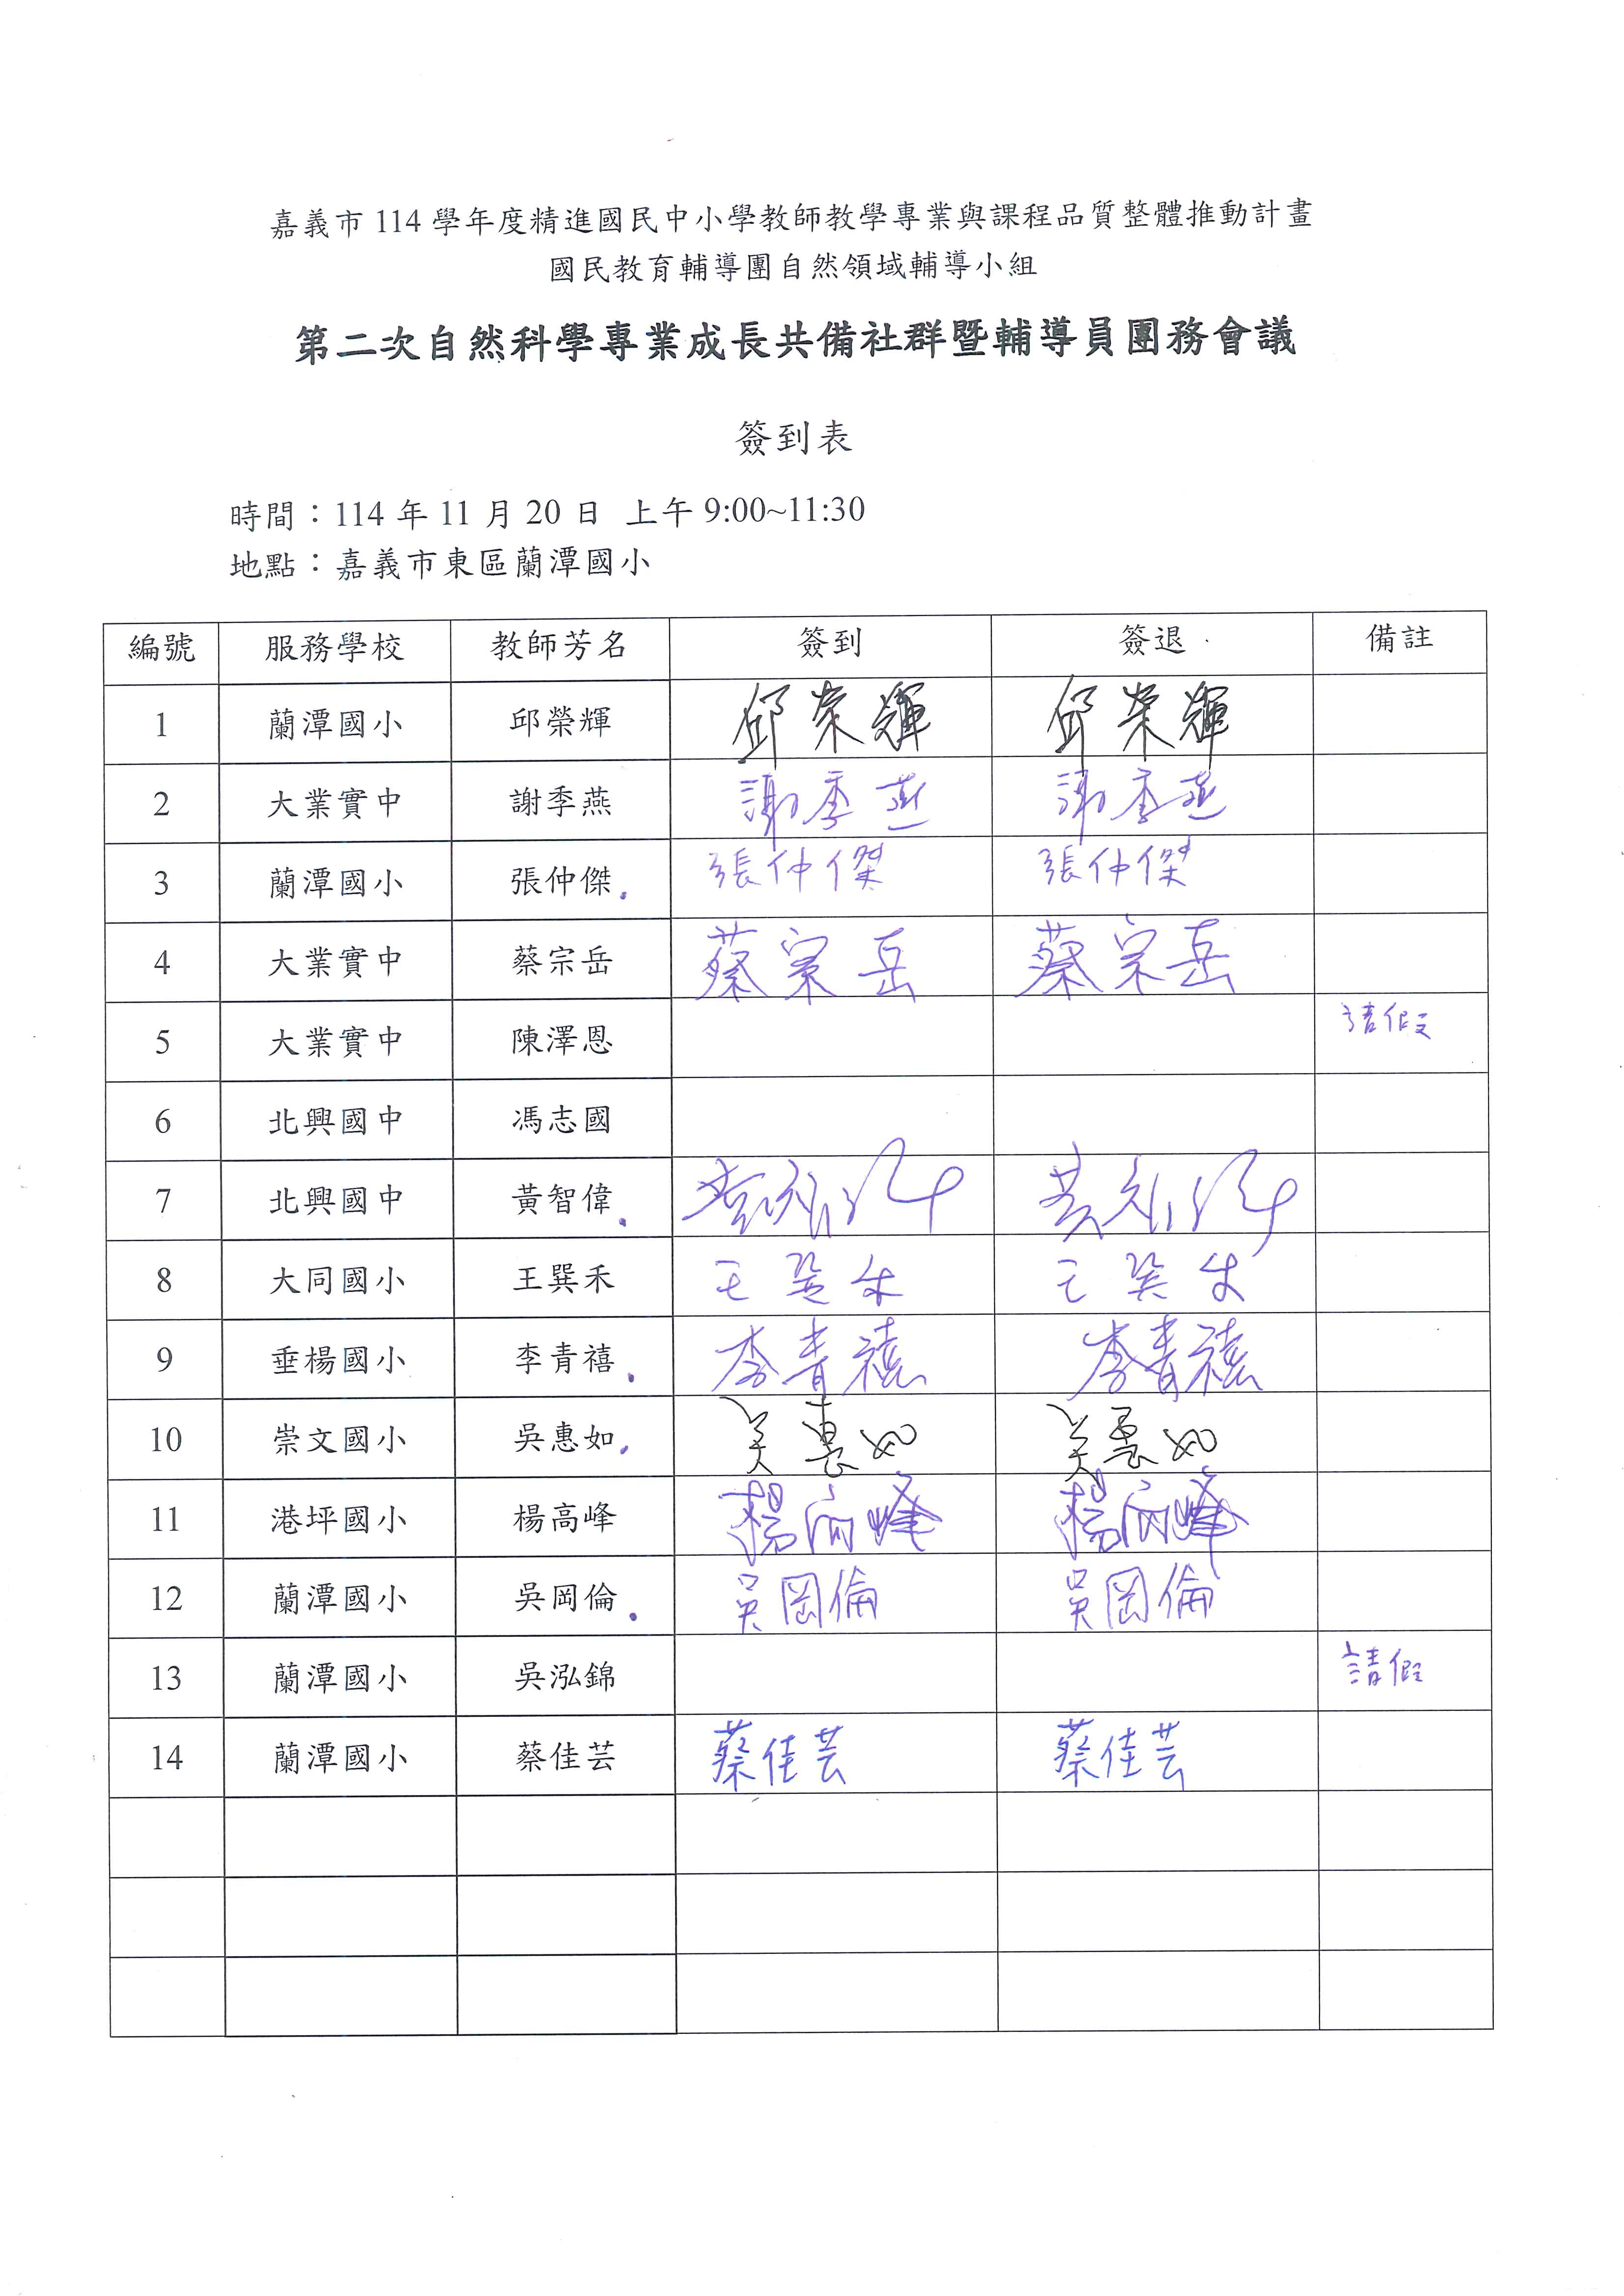 嘉義市 114 學年度精進國民中小學教師教學專業與課程品質整體推動計畫
國民教育輔導團自然領域輔導小組
第二次自然科學專業成長共備社群暨輔導員團務會議
簽到表
時間：114 年 11 月 20 日 上午 9:00~11:30
地點：嘉義市東區蘭潭國小
編號 服務學校 教師芳名 簽到 簽退 備註
1 蘭潭國小 邱榮輝 邱榮輝 邱榮輝
2 大業實中 謝季燕 謝季燕 謝季燕
3 蘭潭國小 張仲傑 張仲傑 張仲傑
4 大業實中 蔡宗岳 蔡宗岳 蔡宗岳
5 大業實中 陳澤恩 請假
6 北興國中 馮志國
7 北興國中 黃智偉 黃智偉 黃智偉
8 大同國小 王巽禾 王巽禾 王巽禾
9 垂楊國小 李青禧 李青禧 李青禧
10 崇文國小 吳惠如 吳惠如 吳惠如
11 港坪國小 楊高峰 楊高峰 楊高峰
12 蘭潭國小 吳岡倫 吳岡倫 吳岡倫
13 蘭潭國小 吳泓錦 請假
14 蘭潭國小 蔡佳芸 蔡佳芸 蔡佳芸